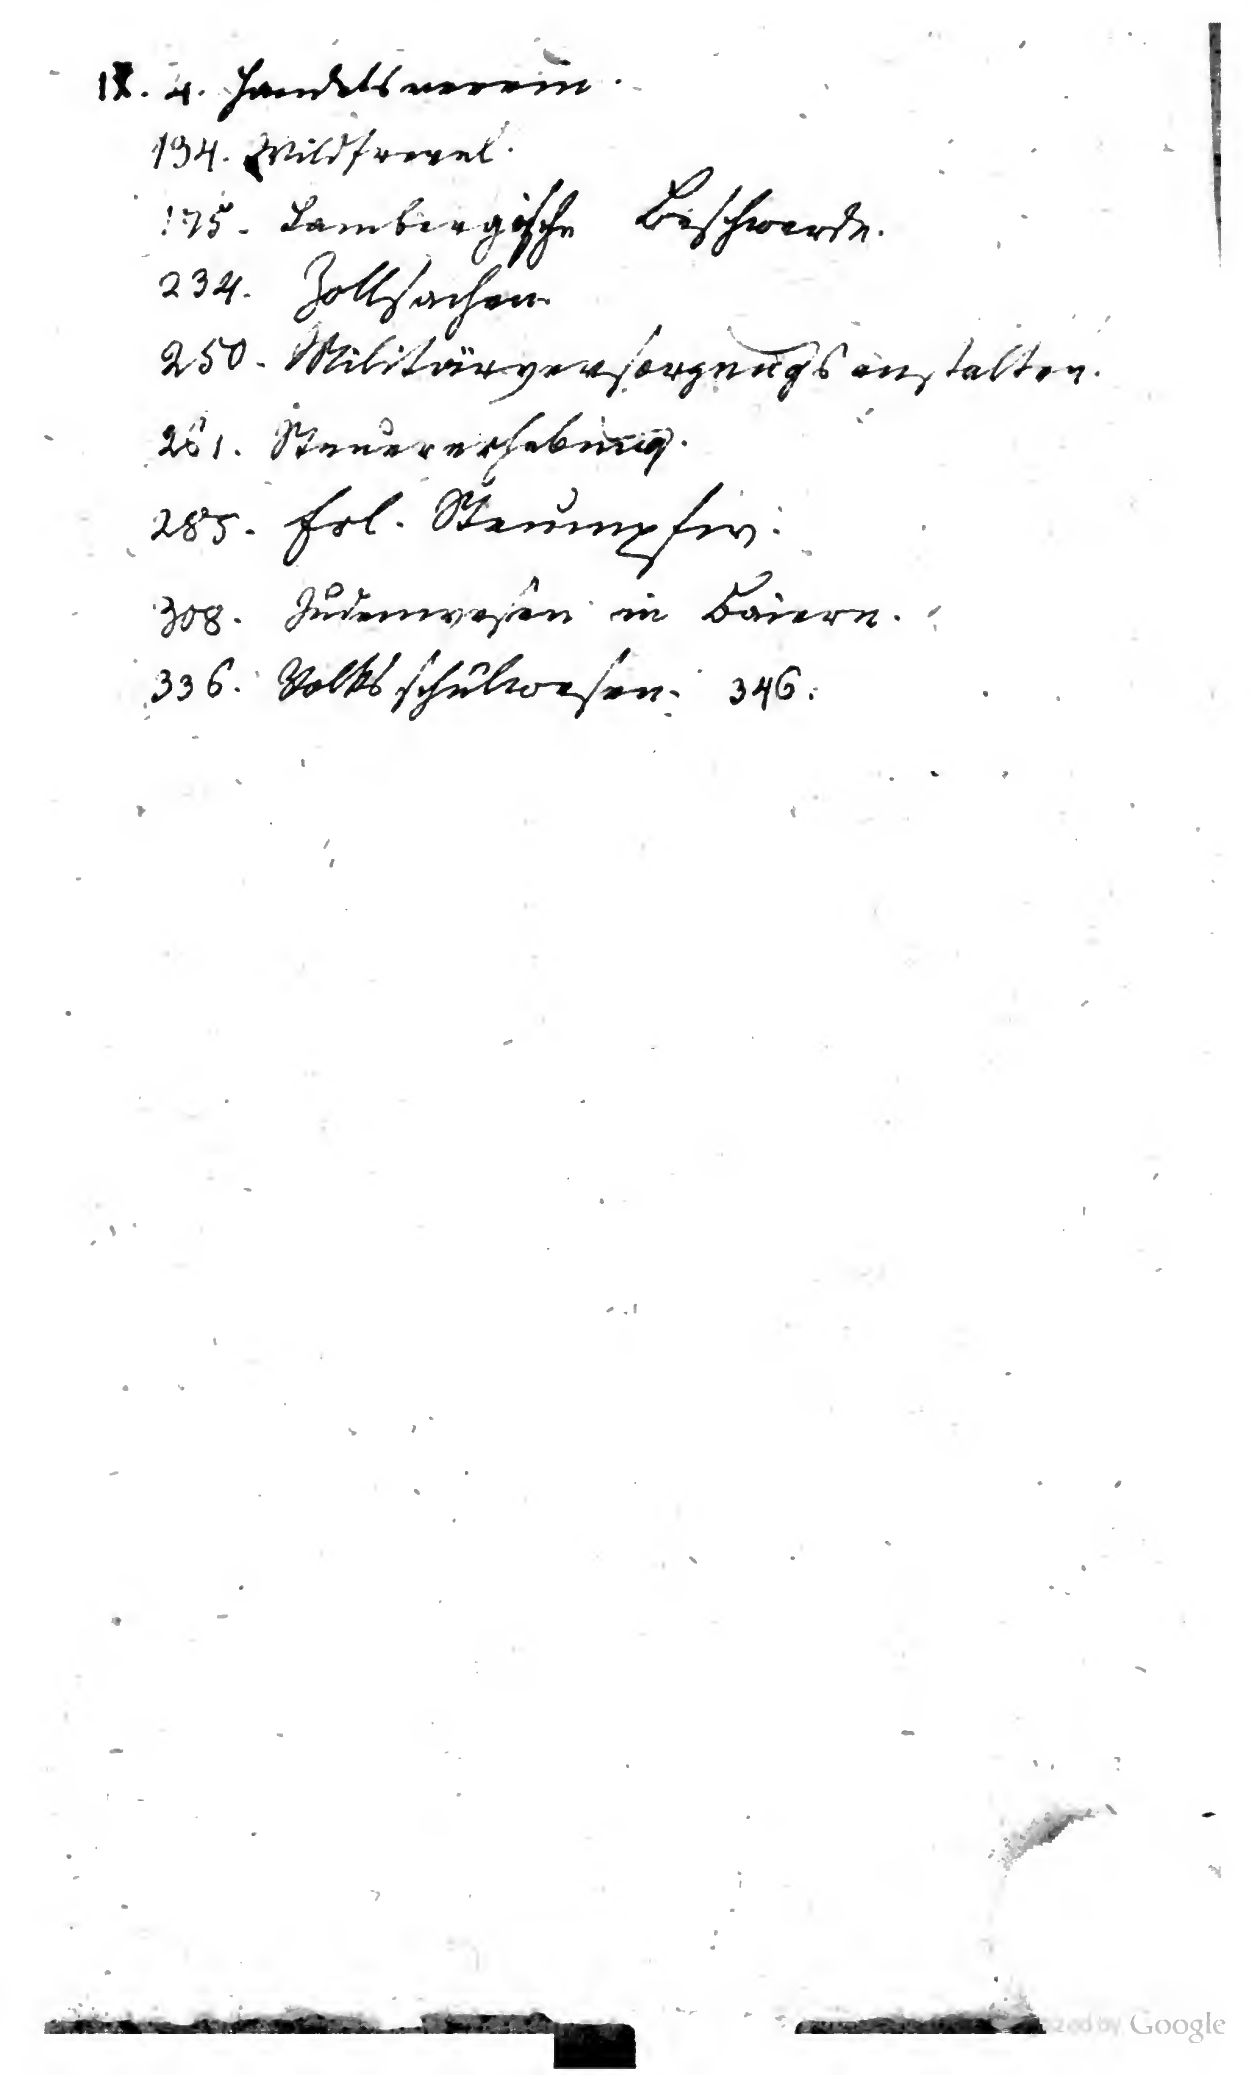 IX. 4. Handelsverein.
194. Wildfrevel.
175. Lambergische Beschwerde.
234. Zollsachen.
250. Militärversorgungsanstalten.
261. Steuererhebung.
285. Frl.
308. Judenwesen in Baiern.
336. Volksschulwesen. 346.
Google